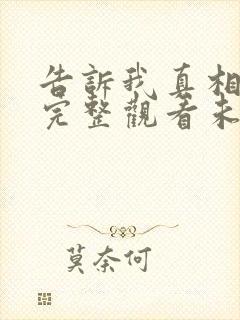 告訴我真相
完整觀看未
莫奈何